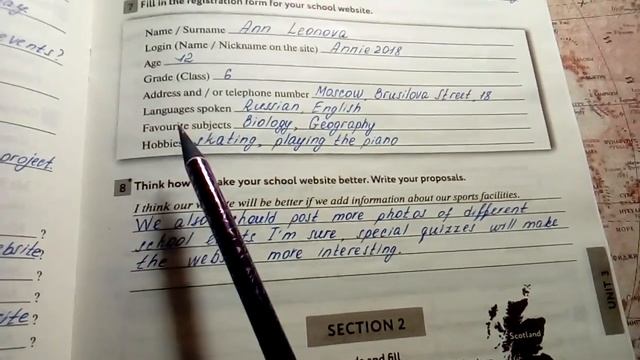 7 Fill in the registration form for your school website.
Name / Surname Ann Leonova
Login (Name / Nickname on the site) Annie 2018
Age 12
Grade (Class) 6
Address and / or telephone number Moscow, Brusilova Street, 18
Languages spoken Russian, English
Favourite subjects Biology, Geography
Hobbies skating, playing the piano
events?
project.
8 Think how make your school website better. Write your proposals.
I think our will be better if we add information about our sports facilities.
We also should post more photos of different
school I'm sure, special quizzes will make
the more interesting.
?
?
?
?
UNIT 3
SECTION 2
Scotland
and fill